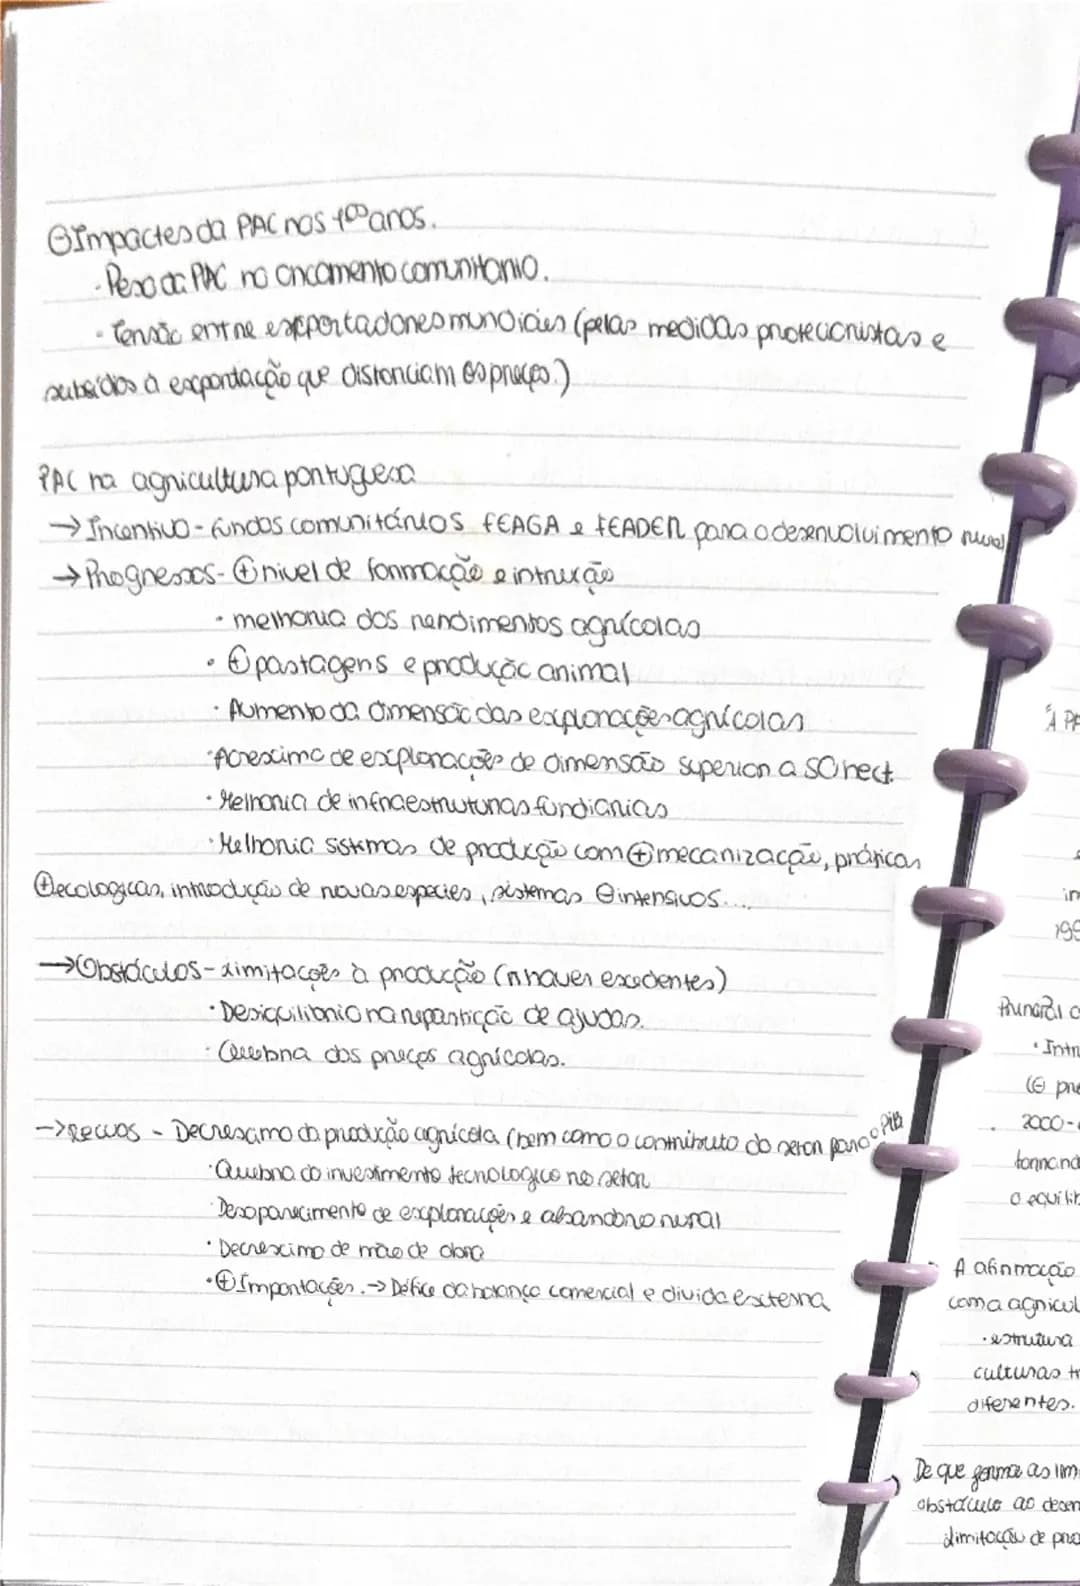 ⊖Impactes da PAC nos 1ºˢ anos.
· Peso da PAC no orçamento comunitário.
· Tensão entre exportadores mundiais (pelas medidas protecionistas e
subsídos à exportação que distorciam os preços.)
PAC na agricultura portuguesa
→ Incentivo - fundos comunitários FEAGA e FEADER para o desenvolvimento rural
→ Progressos - ⊕ nivel de formação e intrução
· melhoria dos rendimentos agrícolas
· ⊕ pastagens e produção animal
· Aumento da dimensão das explorações agrícolas
· Acrescimo de explorações de dimensão superior a 50 hect.
· Melhoria de infraestruturas fundiarias
· Melhoria sistemas de produção com ⊕ mecanização, práticas
⊕ ecologicas, introdução de novas especies, sistemas ⊖ intensivos....
→ Obstáculos - Limitações à produção (ñ haver excedentes)
· Desiquilibrio na repartição de ajudas.
· Quebra dos preços agrícolas.
→ Recuos - Decrescimo da produção agrícola (bem como o contributo do setor para o PIB
· Quebra do investimento tecnologico no setor
· Desaparecimento de explorações e abandono rural
· Decrescimo de mão de obra
· ⊕ Importações. → Défice da balança comercial e divida externa
"A PA
in
199
· Intr
(⊖ pre
2000-
tornand
o equilib
A afirmação
com a agricul
· estrutura
culturas tr
diferentes.
De que forma as lim
obstáculo ao desen
limitação de pro